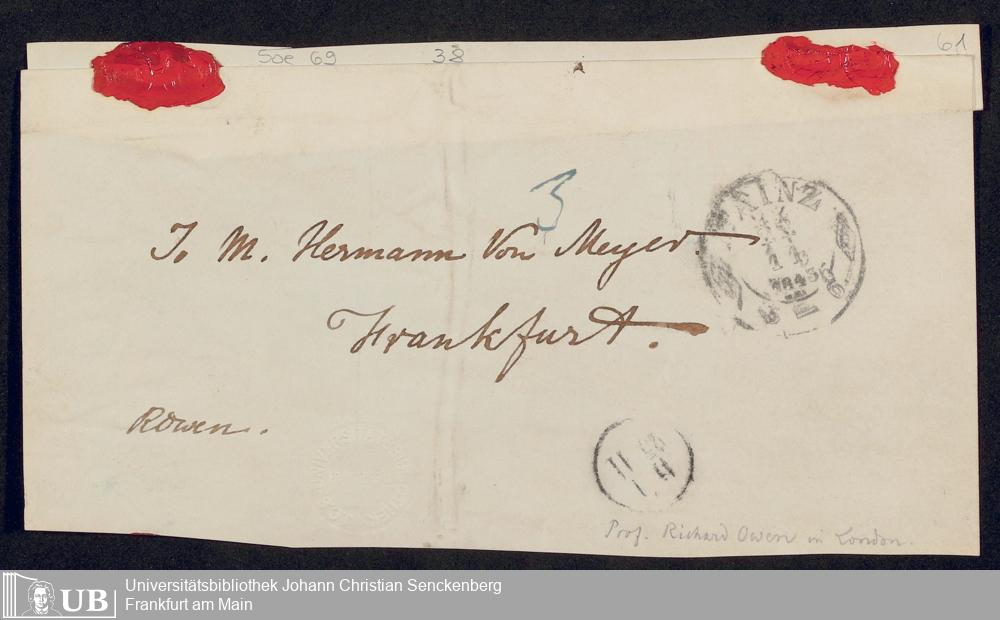 Soe 69 38 61
3
To M. Hermann Von Meyer.
Frankfurt.
ROwen.
MAINZ
11
1843
Prof. Richard Owen in London.
UB
Universitätsbibliothek Johann Christian Senckenberg
Frankfurt am Main